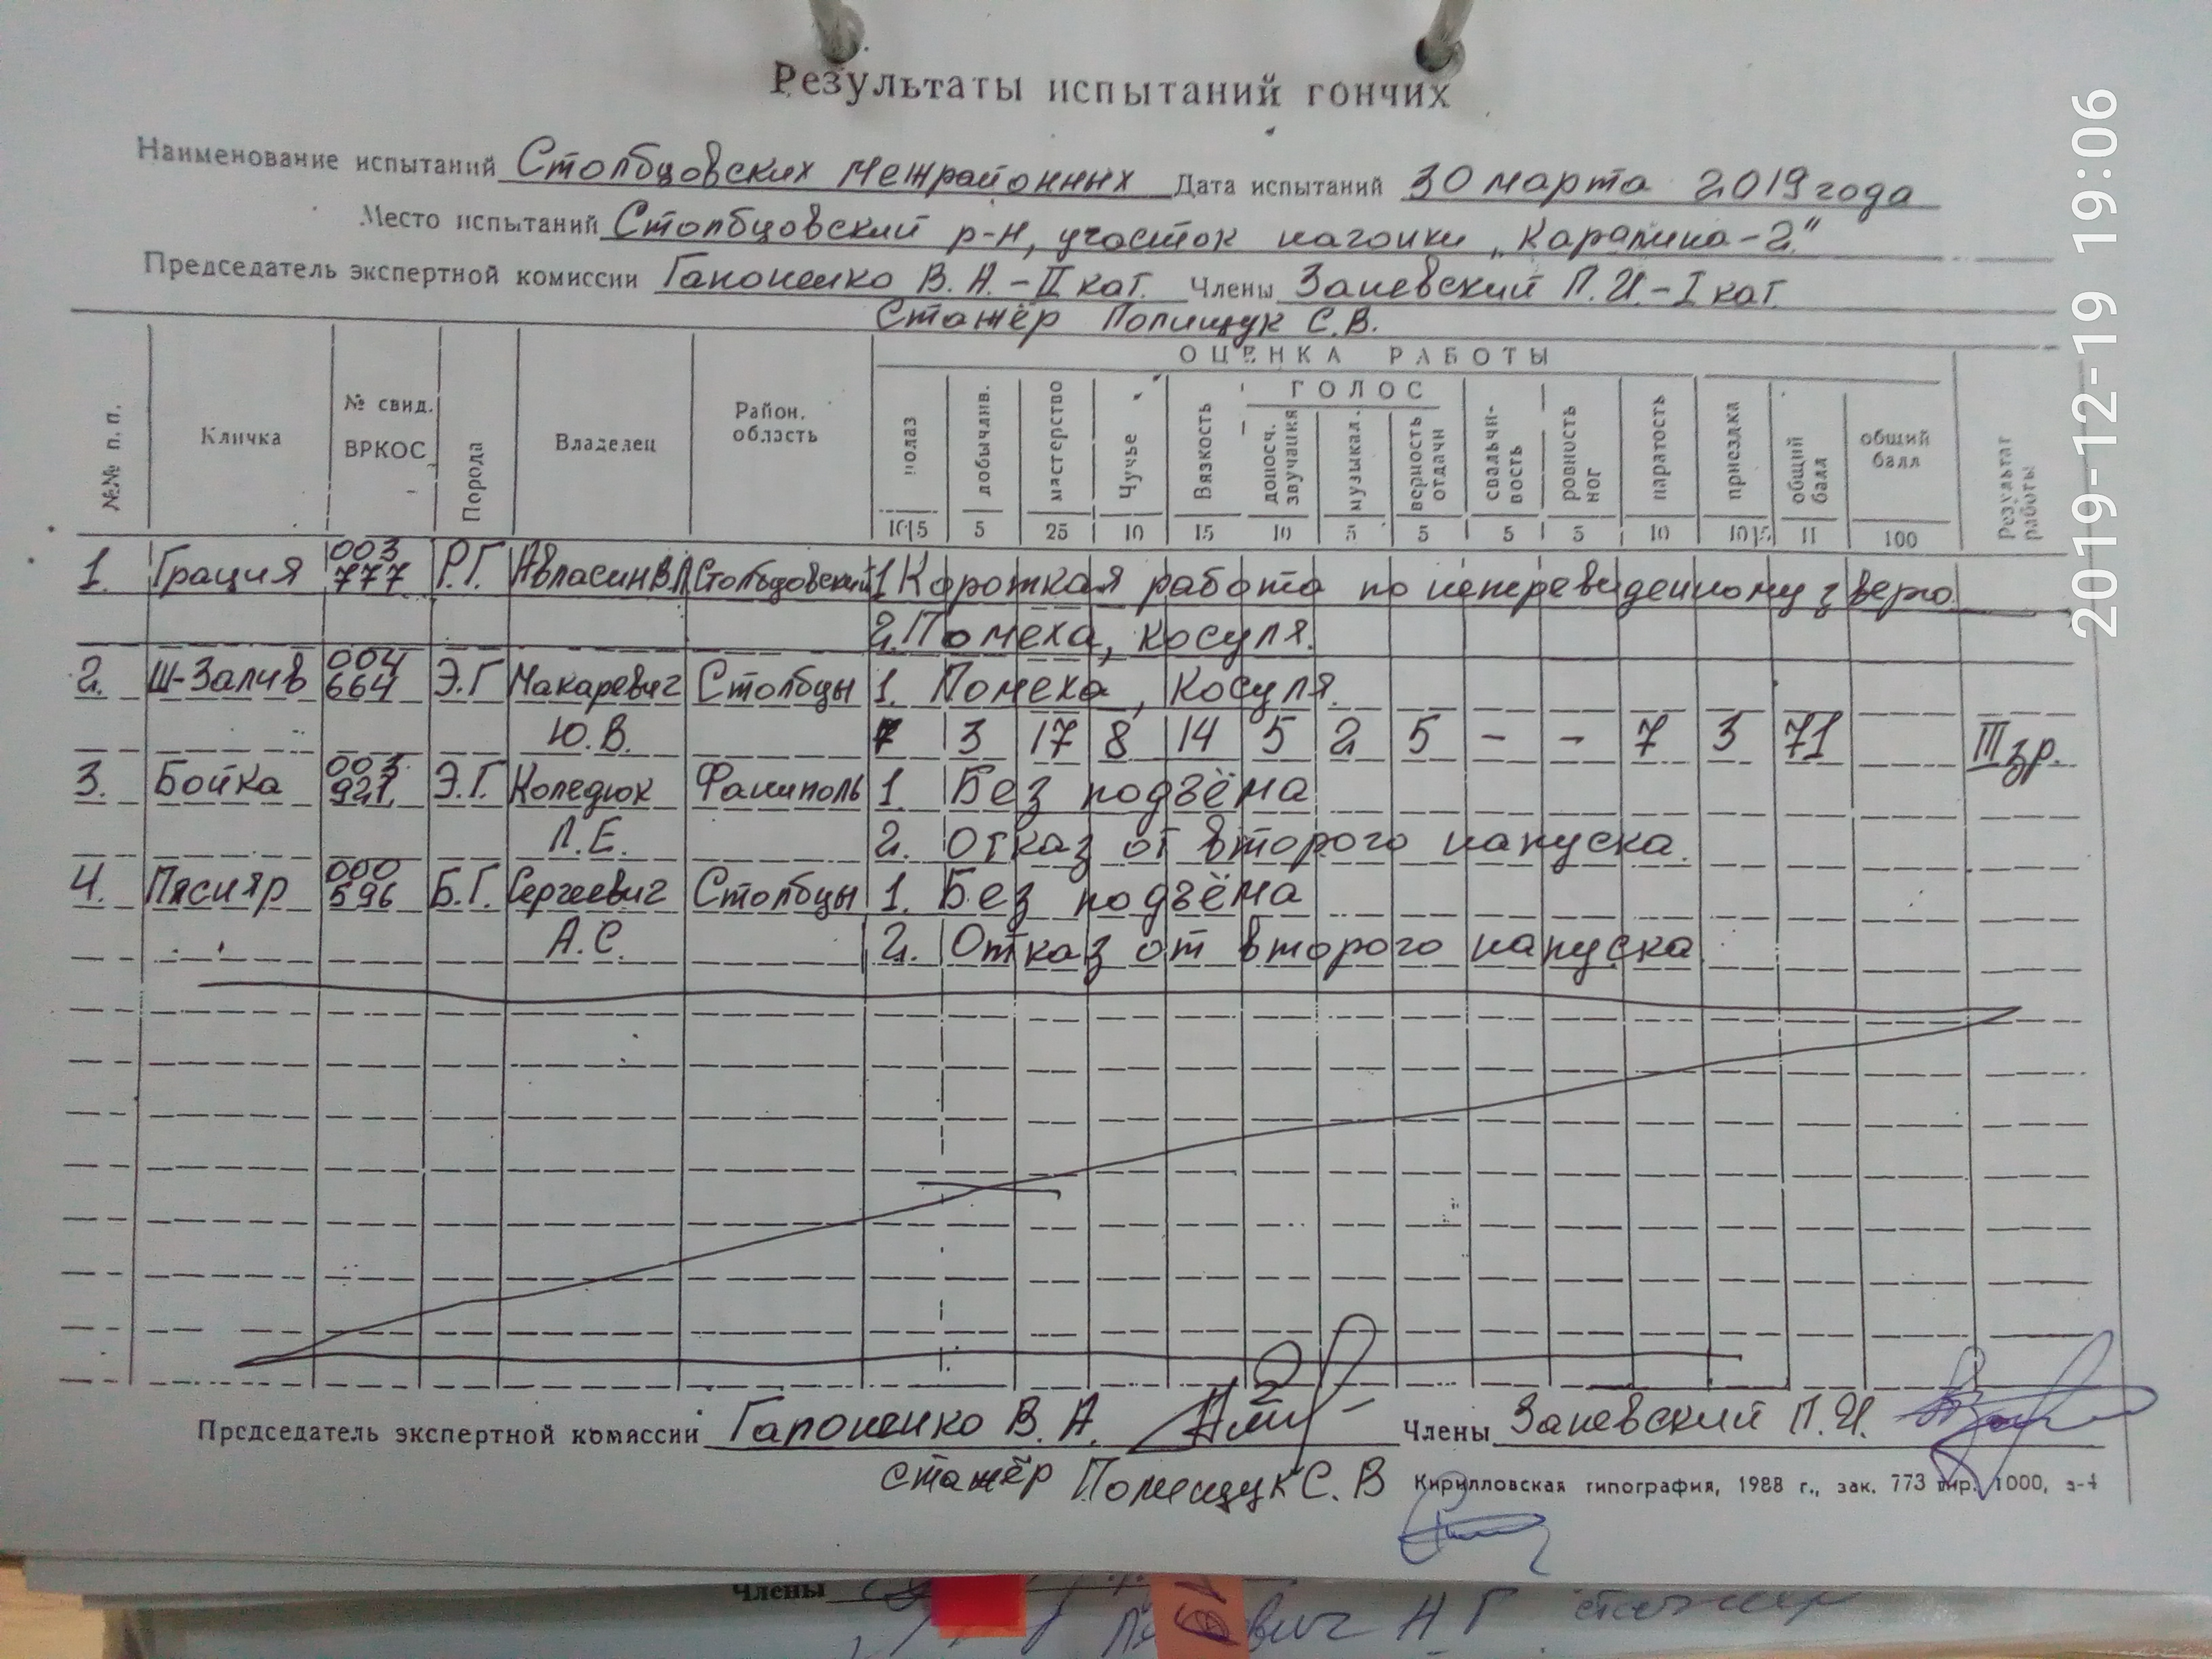 Результаты испытаний гончих
Наименование испытаний Столбцовских межрайонных Дата испытаний 30 марта 2019 года
Место испытаний Столбцовский р-н, участок нагонки „Каралина-2"
Председатель экспертной комиссии Гапоненко В. А. - II кат. Члены Заневский П.И. - I кат.
Стажёр Полищук С.В.
ОЦЕНКА РАБОТЫ
ГОЛОС
№№ п. п. Кличка № свид. ВРКОС Порода Владелец Район, область полаз добычлив. мастерство Чутье Вязкость доносч. звучания музыкал. верность отдачи свальчи-вость ровность ног паратость приездка общий балл общий балл Результат работы
10|5 5 25 10 15 10 5 5 5 5 10 10|5 11 100
1. Грация 003 777 Р.Г. Авласин В.Л Столбцовский 1 Короткая работа по неперевиденному зверю
2. Помеха, косуля.
2. Ш-Залив 004 664 Э.Г Макаревич Столбцы 1. Помеха, косуля.
Ю.В. 7 3 17 8 14 5 2 5 - - 7 3 71 III зр.
3. Бойка 003 921 Э.Г. Коледюк Фаниполь 1. Без подъёма
Л.Е. 2. Отказ от второго напуска.
4. 000 596 Б.Г. Сергеевич Столбцы 1. Без подъёма
А.С. 2. Отказ от второго напуска
Председатель экспертной комиссии Гапоненко В. А. Члены Заневский П.И.
стажёр Полищук С. В Кирилловская типография, 1988 г., зак. 773 тир. 1000, з-4
Члены
вич Н Г. стажер
2019-12-19 19:06